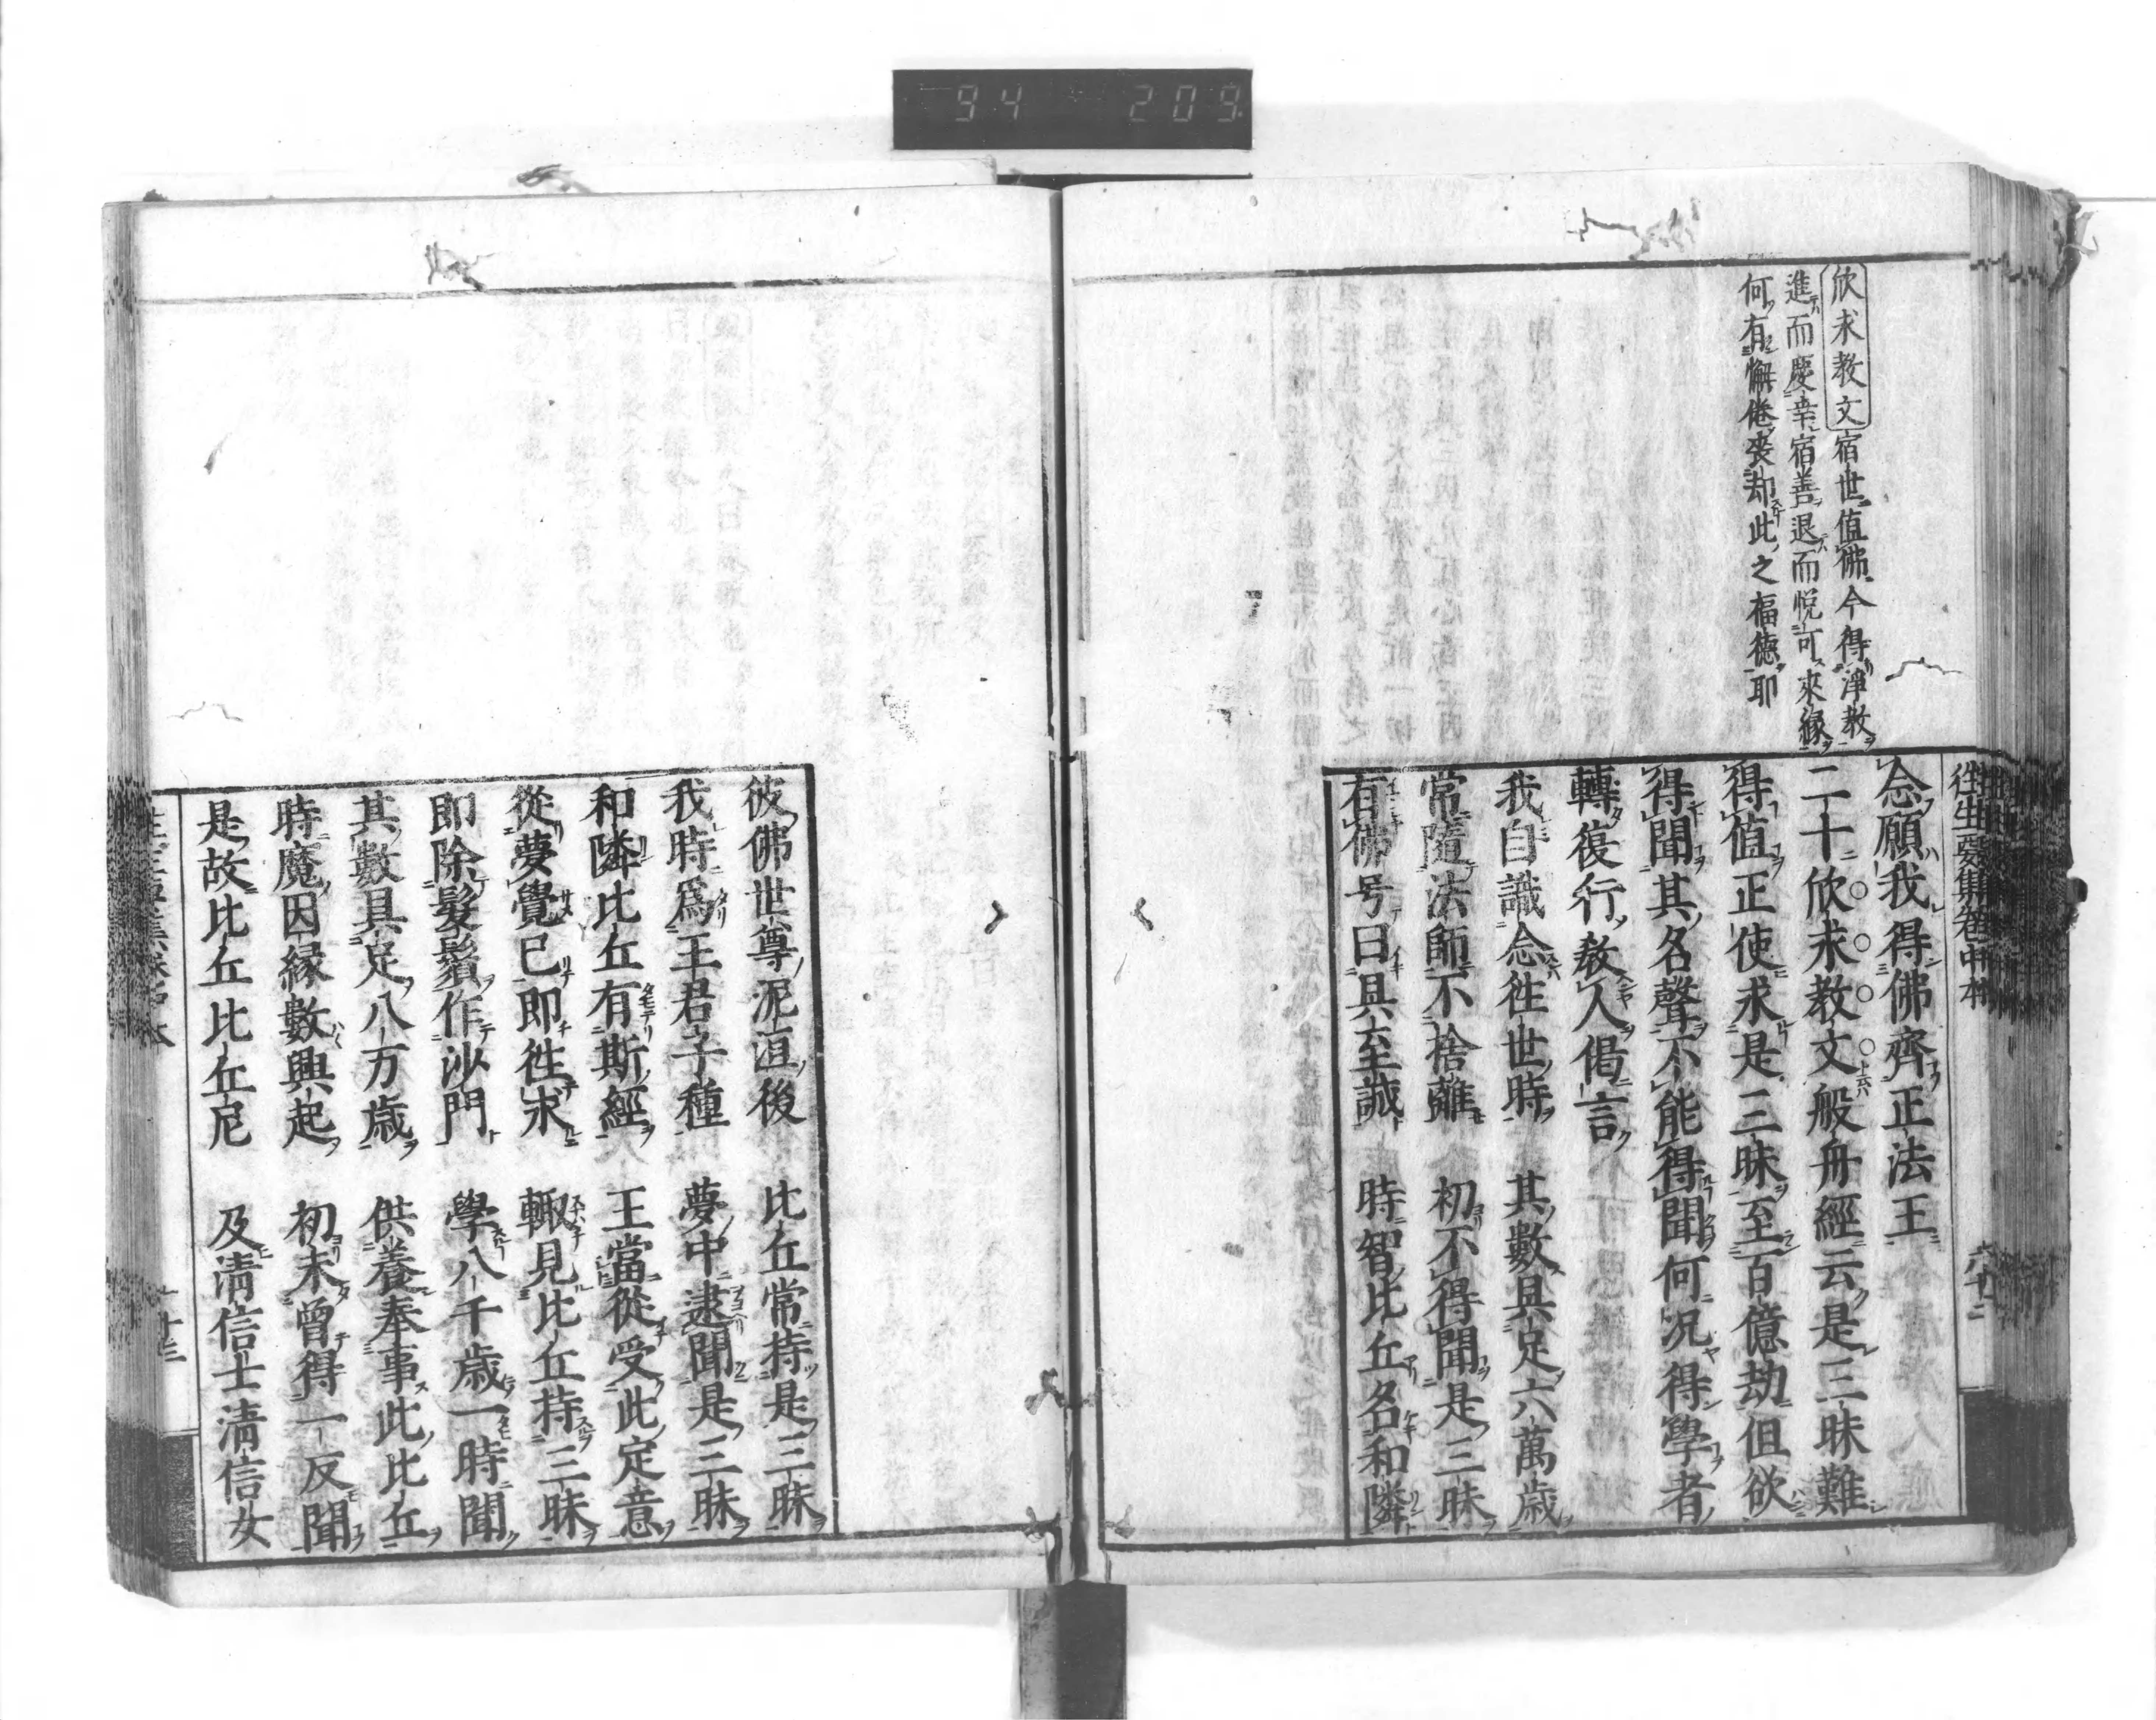 94 209
欣求教文宿世値佛今得淨教
進而慶幸宿善退而悦可來縁
何有懈倦喪却此之福德耶
往生要集卷中本
念願我得佛齊正法王
二十欣求教文般舟經云是三昧難
得値正使求是三昧至百億劫但欲
得聞其名聲不能得聞何况得學者
轉復行教人偈言
我自識念往世時 其數具足六萬歳
常隨法師不捨離 初不得聞是三昧
有佛号曰具至誠 時智比丘名和隣
彼佛世尊泥洹後 比丘常持是三昧
我時爲王君子種 夢中逮聞是三昧
和隣比丘有斯經 王當從受此定意
從夢覺已即往求 輙見比丘持三昧
即除髮鬚作沙門 學八千歳一時聞
其數具足八万歳 供養奉事此比丘
時魔因縁數興起 初未曾得一反聞
是故比丘比丘尼 及清信士清信女